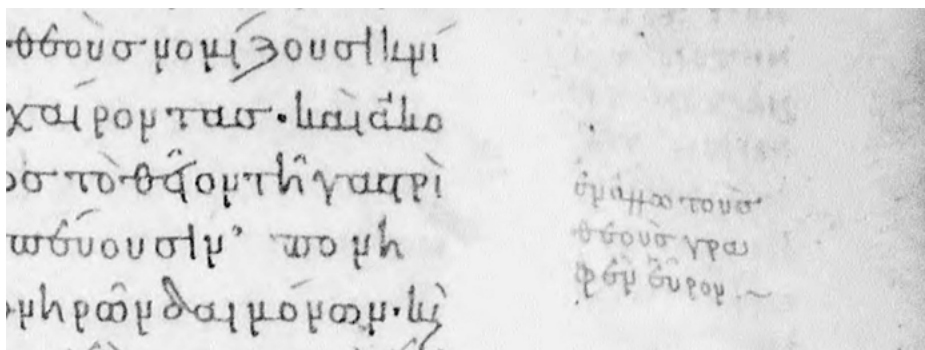 θεοὺσ νομίζουσι κνί
χαίροντασ· καὶ ἀκο
τὸ θεῖον τῆ γαστρὶ
πεύουσιν· πονη
δαιμόνων· καὶ
ἐν ἄλλω τοὺσ
θεοὺσ γρα
φὲν εὗρον